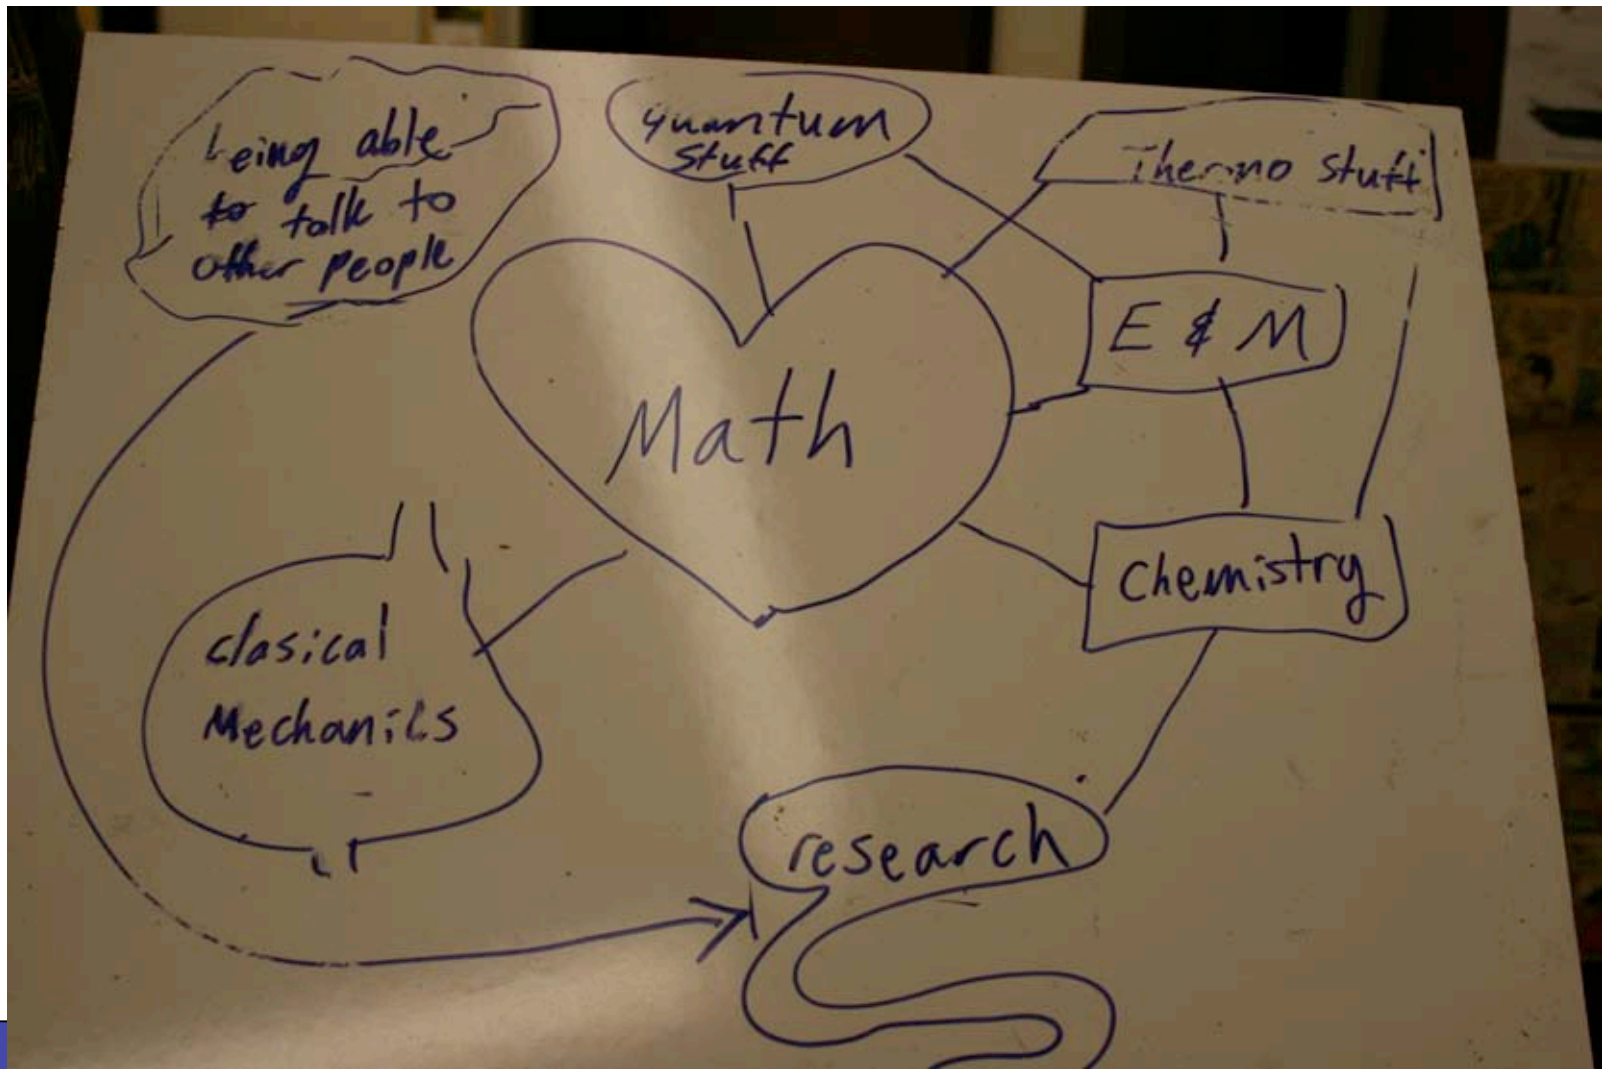 being able
to talk to
other people
quantum
stuff
Thermo stuff
E & M
Math
Chemistry
clasical
Mechanics
research